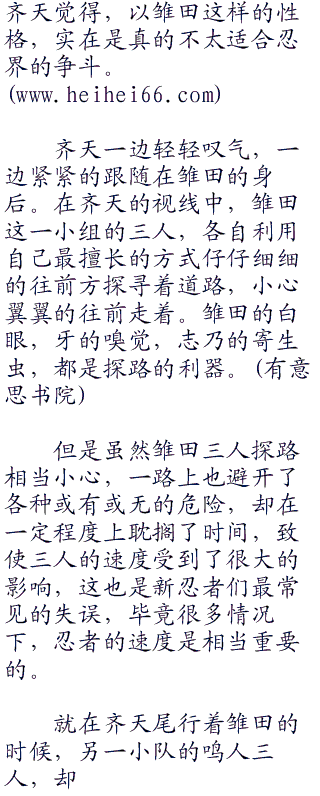 齐天觉得，以雏田这样的性
格，实在是真的不太适合忍
界的争斗。
(www.heihei66.com)
齐天一边轻轻叹气，一
边紧紧的跟随在雏田的身
后。在齐天的视线中，雏田
这一小组的三人，各自利用
自己最擅长的方式仔仔细细
的往前方探寻着道路，小心
翼翼的往前走着。雏田的白
眼，牙的嗅觉，志乃的寄生
虫，都是探路的利器。(有意
思书院)
但是虽然雏田三人探路
相当小心，一路上也避开了
各种或有或无的危险，却在
一定程度上耽搁了时间，致
使三人的速度受到了很大的
影响，这也是新忍者们最常
见的失误，毕竟很多情况
下，忍者的速度是相当重要
的。
就在齐天尾行着雏田的
时候，另一小队的鸣人三
人，却